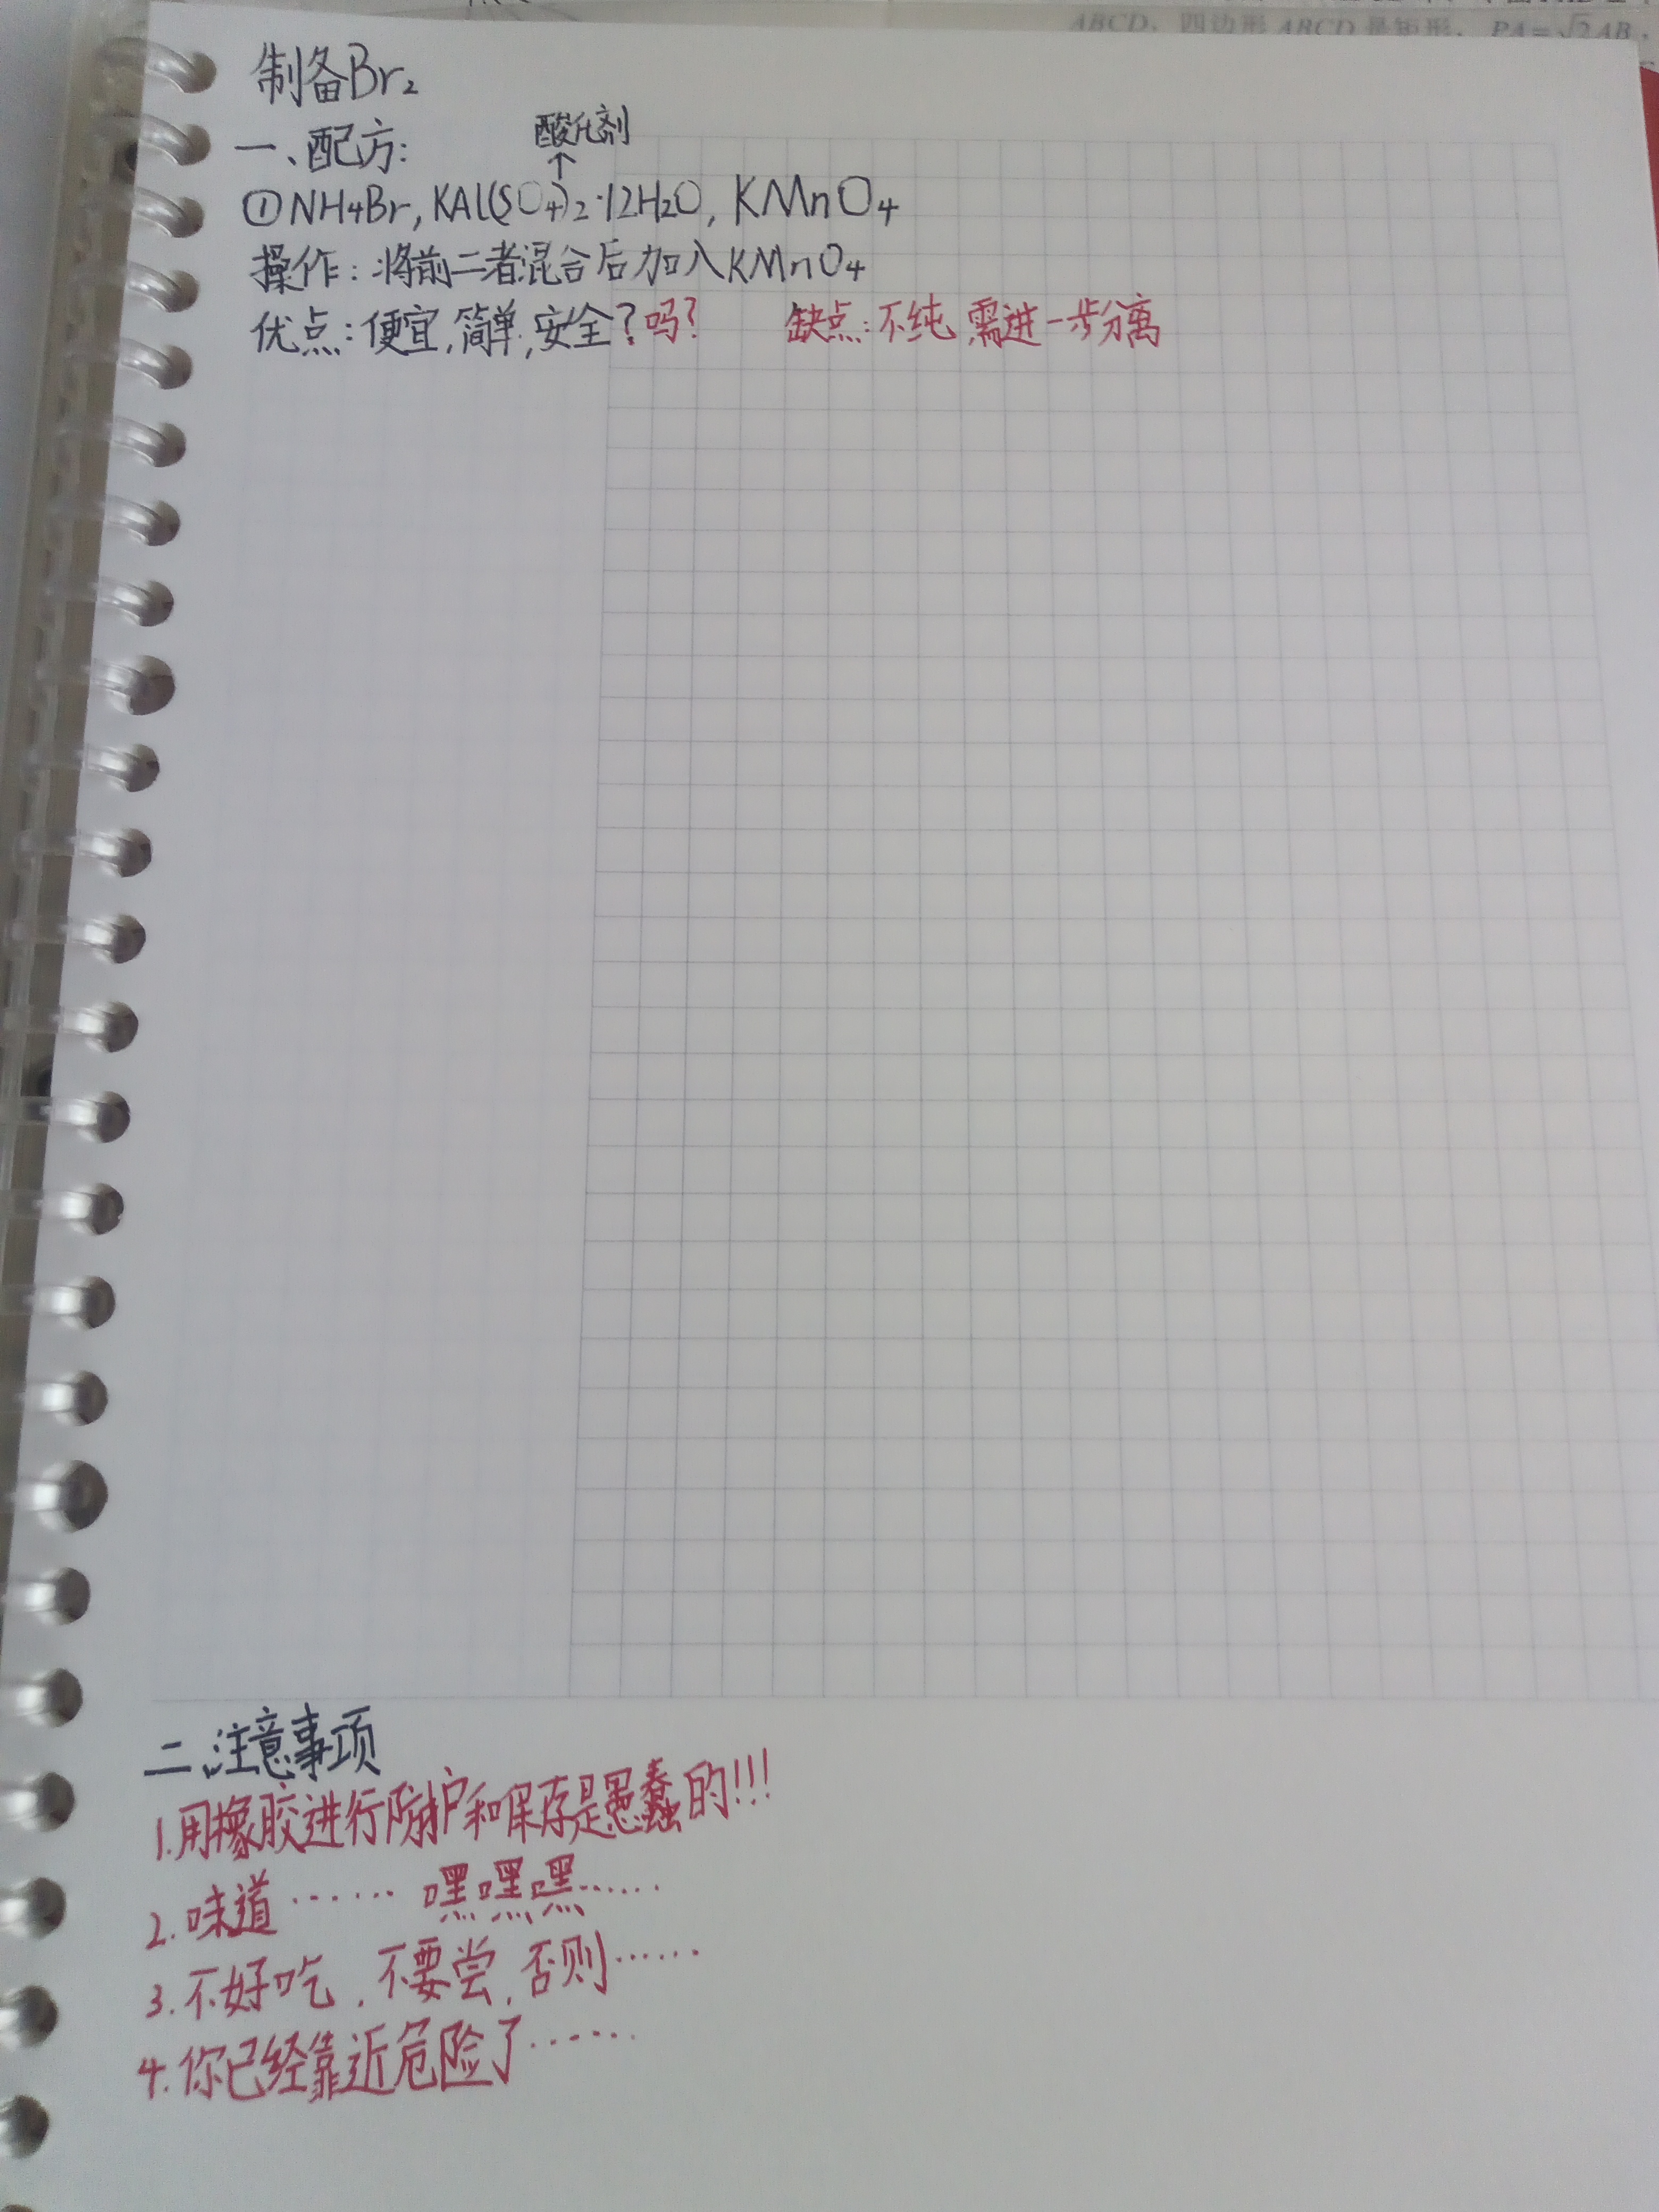 ABCD，四边形ABCD是矩形，PA=√2AB，
制备Br₂
一、配方：
酸化剂
↑
①NH₄Br，KAl(SO₄)₂·12H₂O，KMnO₄
操作：将前二者混合后加入KMnO₄
优点：便宜，简单，安全？吗？ 缺点：不纯，需进一步分离
二、注意事项
1.用橡胶进行防护和保存是愚蠢的!!!
2.味道…… 嘿嘿嘿……
3.不好吃，不要尝，否则……
4.你已经靠近危险了……